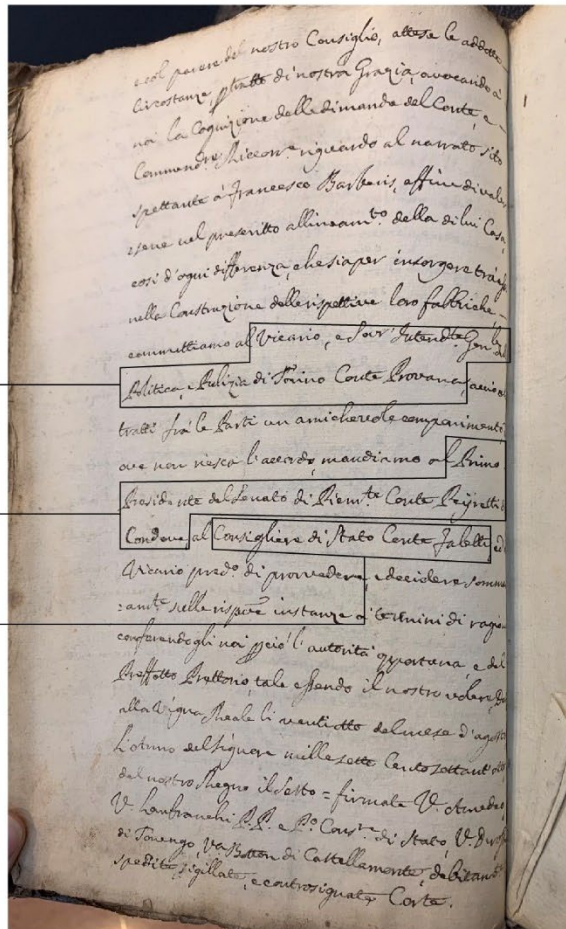 e col parere del nostro Consiglio, attese le addotte
circostanze, p tratto di nostra Grazia, avocando à
noi la Cognizione delle dimande del Conte, e
Commend.re Riccorr.e riguardo al narrato sito
spettante à Francesco Barberis, affine di valer
sene nel prescritto allineam.to della di lui Casa,
così d'ogni differenza, che sia per insorgere trà
nella Construzione delle rispettive loro fabbriche
committiamo al Vicario, e Sovr'Intend.te Gen.le di
Politica, e Pulizia di Torino Conte Provana,
tratti frà le Parti un amichevole componimento
ove non riesca l'accordo, mandiamo al Primo
Presidente del Senato di Piem.te Conte Peyretti di
Condove, al Consigliere di Stato Conte Faletti, ed
Vicario pred.o di provvedere, e decidere somma
:am.te sulle rispve instanze à termini di ragio
conferendogli noi pciò l'autorità opportuna, e del
Preffetto Prettorio, tale essendo il nostro volere. Dat
alla Vigna Reale li ventiotto del mese d'agosto
L'anno del Signore mille sette Cento settant'otto
del nostro Regno il Sesto = firmate V. Amedeo
V. Lanfranchi P.P. e P.o Cons.re di Stato, V.
di Tonengo, V.a Botton di Castellamonte, debitam.te
spedite, sigillate, e controsignate, Corte.